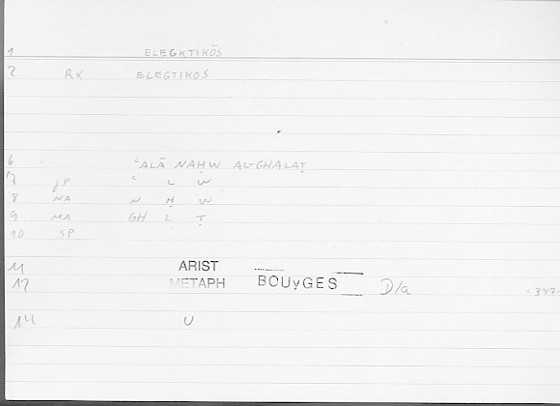 1 ELEGKTIKŌS
2 RX ELEGTIKOS
6 ʿALĀ NAḤW AL-GHALAṬ
7 JP ʿ L W
8 NA N Ḥ W
9 MA GH L Ṭ
10 SP
11 ARIST
12 METAPH BOUyGES D/a
14 U